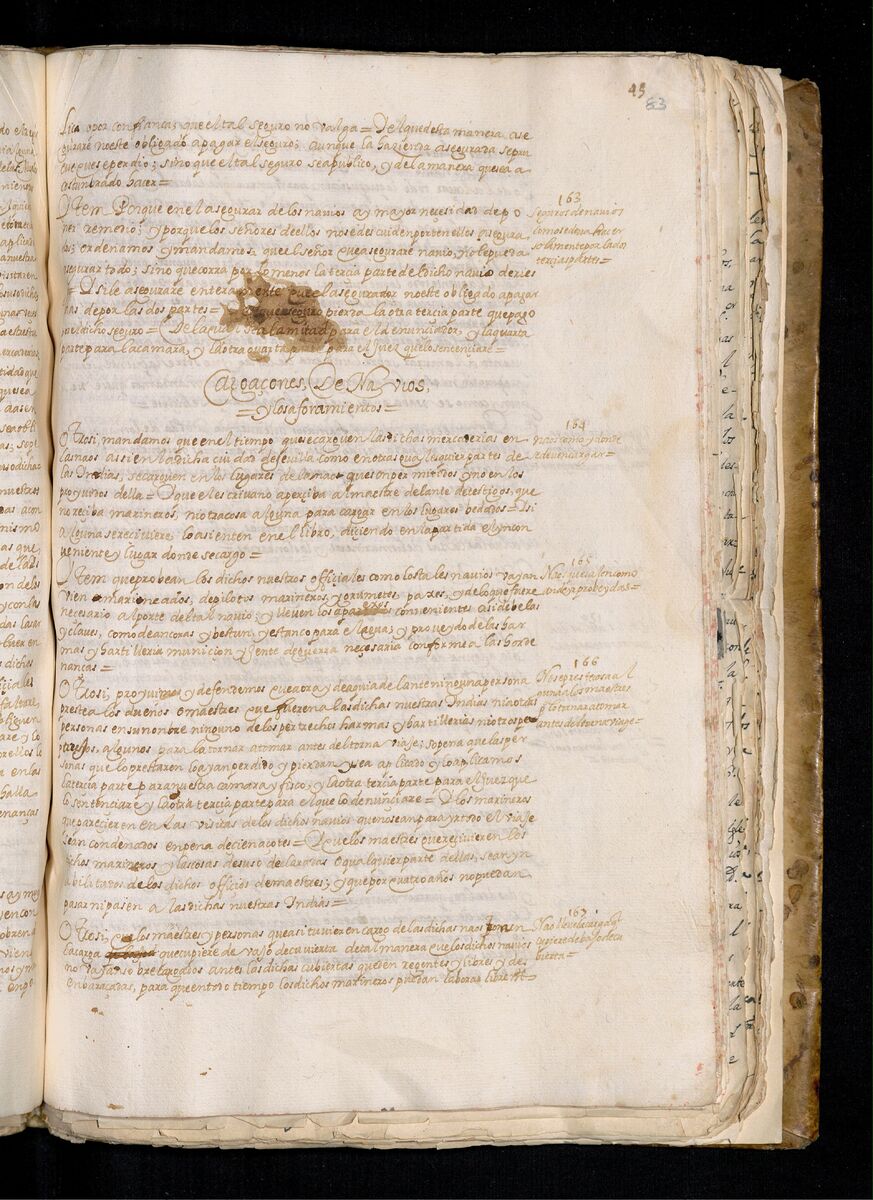 45
83
lica o por confiança; que el tal seguro no valga = Del que desta manera ase
gurare no este obligado a pagar el seguro; aunque la hazienda asegurada sepru
eue que se perdio; sino que el tal seguro sea publico, y de la manera que se a
costumbrado hacer =
Item Porque en el asegurar de los navios ay mayor necesidad de po
ner remedio; y porque los señores dellos no se descuiden por tenellos asegura
dos; ordenamos y mandamos, que el señor que asegurare navio, no le pueda
asegurar todo; sino que corra por lo menos la tercia parte del dicho navio de ries
go = Y si le asegurare enteramente que el asegurador no este obligado a pagar
mas de por las dos partes = y el que aseguro pierda la otra tercia parte que pago
por dicho seguro = De la qual sea la mitad para el denunciador, y la quarta
parte para la camara, y la otra quarta parte para el Juez que lo sentenciare =
163
Seguros de navios
como se deva hacer
solamente por las dos
tercias partes =
Cargaçones, De Navios,
= y los aforamientos =
Otrosi, mandamos que en el tiempo que se carguen las dichas mercaderias en
las naos asi en la dicha ciudad de sevilla como en otras qualesquier partes de
las Indias, se carguen en los lugares de las naos que son permitidos y no en los
proyuidos della = Y que el escrivano aperçiba al maestre delante de testigos, que
no reciba marineros, ni otra cosa alguna para cargar en los lugares bedados = Y si
alguna se recibiere lo asienten en el libro, diciendo en la partida el yncon
ueniente y lugar donde se cargo =
164
naos como y donde
se deven cargar =
Item que probean los dichos nuestros officiales como los tales navios vayan
vien marineados, de pilotos marineros, y grumetes, pajes, y de lo que fuere
necesario al porte del tal navio; y lleven los aparexos convenientes asi de belas
y claves, como de ancoras, y bestun, y estanco para el agua; y proveydo de las har
mas y hartilleria municion y gente de guerra neçesaria conforme a las horde
nanças =
165
Naos que vaYan como
an de yr probeydas =
Otrosi, proyuimos y defendemos que aora y de aqui adelante ninguna persona
preste a los dueños o maestres que fueren a las dichas nuestras Indias ni a otras
personas en su nombre ninguno de los pertrechos harmas y hartillerias ni otros pe
trechos, algunos para la tornar a tomar antes del torna viaje; so pena que las per
sonas que lo prestaren lo ayan perdido y pierdan y sea aplicado y lo aplicamos
la tercia parte para nuestra camara y fisco, y la otra tercia parte para el Juez que
lo sentenciare y la otra tercia parte para el que lo denunciare = Y los marineros
que pareçieren en las visitas de los dichos navios que no sean para yr todo el viaje
sean condenados en pena de cien açotes = Y que los maestres que reçiuieren los
dichos marineros y las cosas de suso declaradas o qualquier parte dellas, sean yn
abilitados de los dichos officios de maestres; y que por quatro años no puedan
pasar ni pasen a las dichas nuestras Indias =
166
No se preste cosa al
guna a los maestres
para tornar a tomar
antes del torna viaje =
Otrosi, que los maestres y personas que asi tuvieren cargo de las dichas naos ponen
la carga que cupiere de vajo de cuvierta de tal manera que los dichos navios
no vayan sobrecargados antes las dichas cubiertas queden regentes y libres y des
enbaraçadas, para que en todo tiempo los dichos marineros puedan laborar libremte =
167
Nao lleve la carga q
cupiere debajo de cu
bierta =